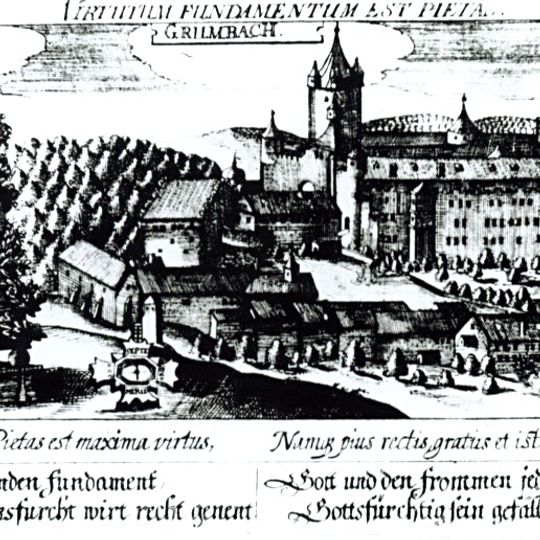 VIRTUTUM FUNDAMENTUM EST PIETA
GRUMBACH.
Pietas est maxima virtus,
Namq3 pius rectis, gratus et ist
nden fundament
sfurcht wirt recht genent
Gott und den frommen jed
Gottsfürchtig sein gefäll